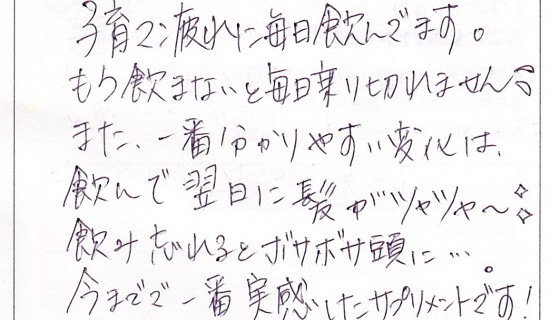 子育てで疲れに毎日飲んでます。
もう飲まないと毎日乗り切れません
また、一番分かりやすい変化は、
飲んで翌日に髪がツヤツヤ〜
飲み忘れるとボサボサ頭に…。
今までで一番実感したサプリメントです!